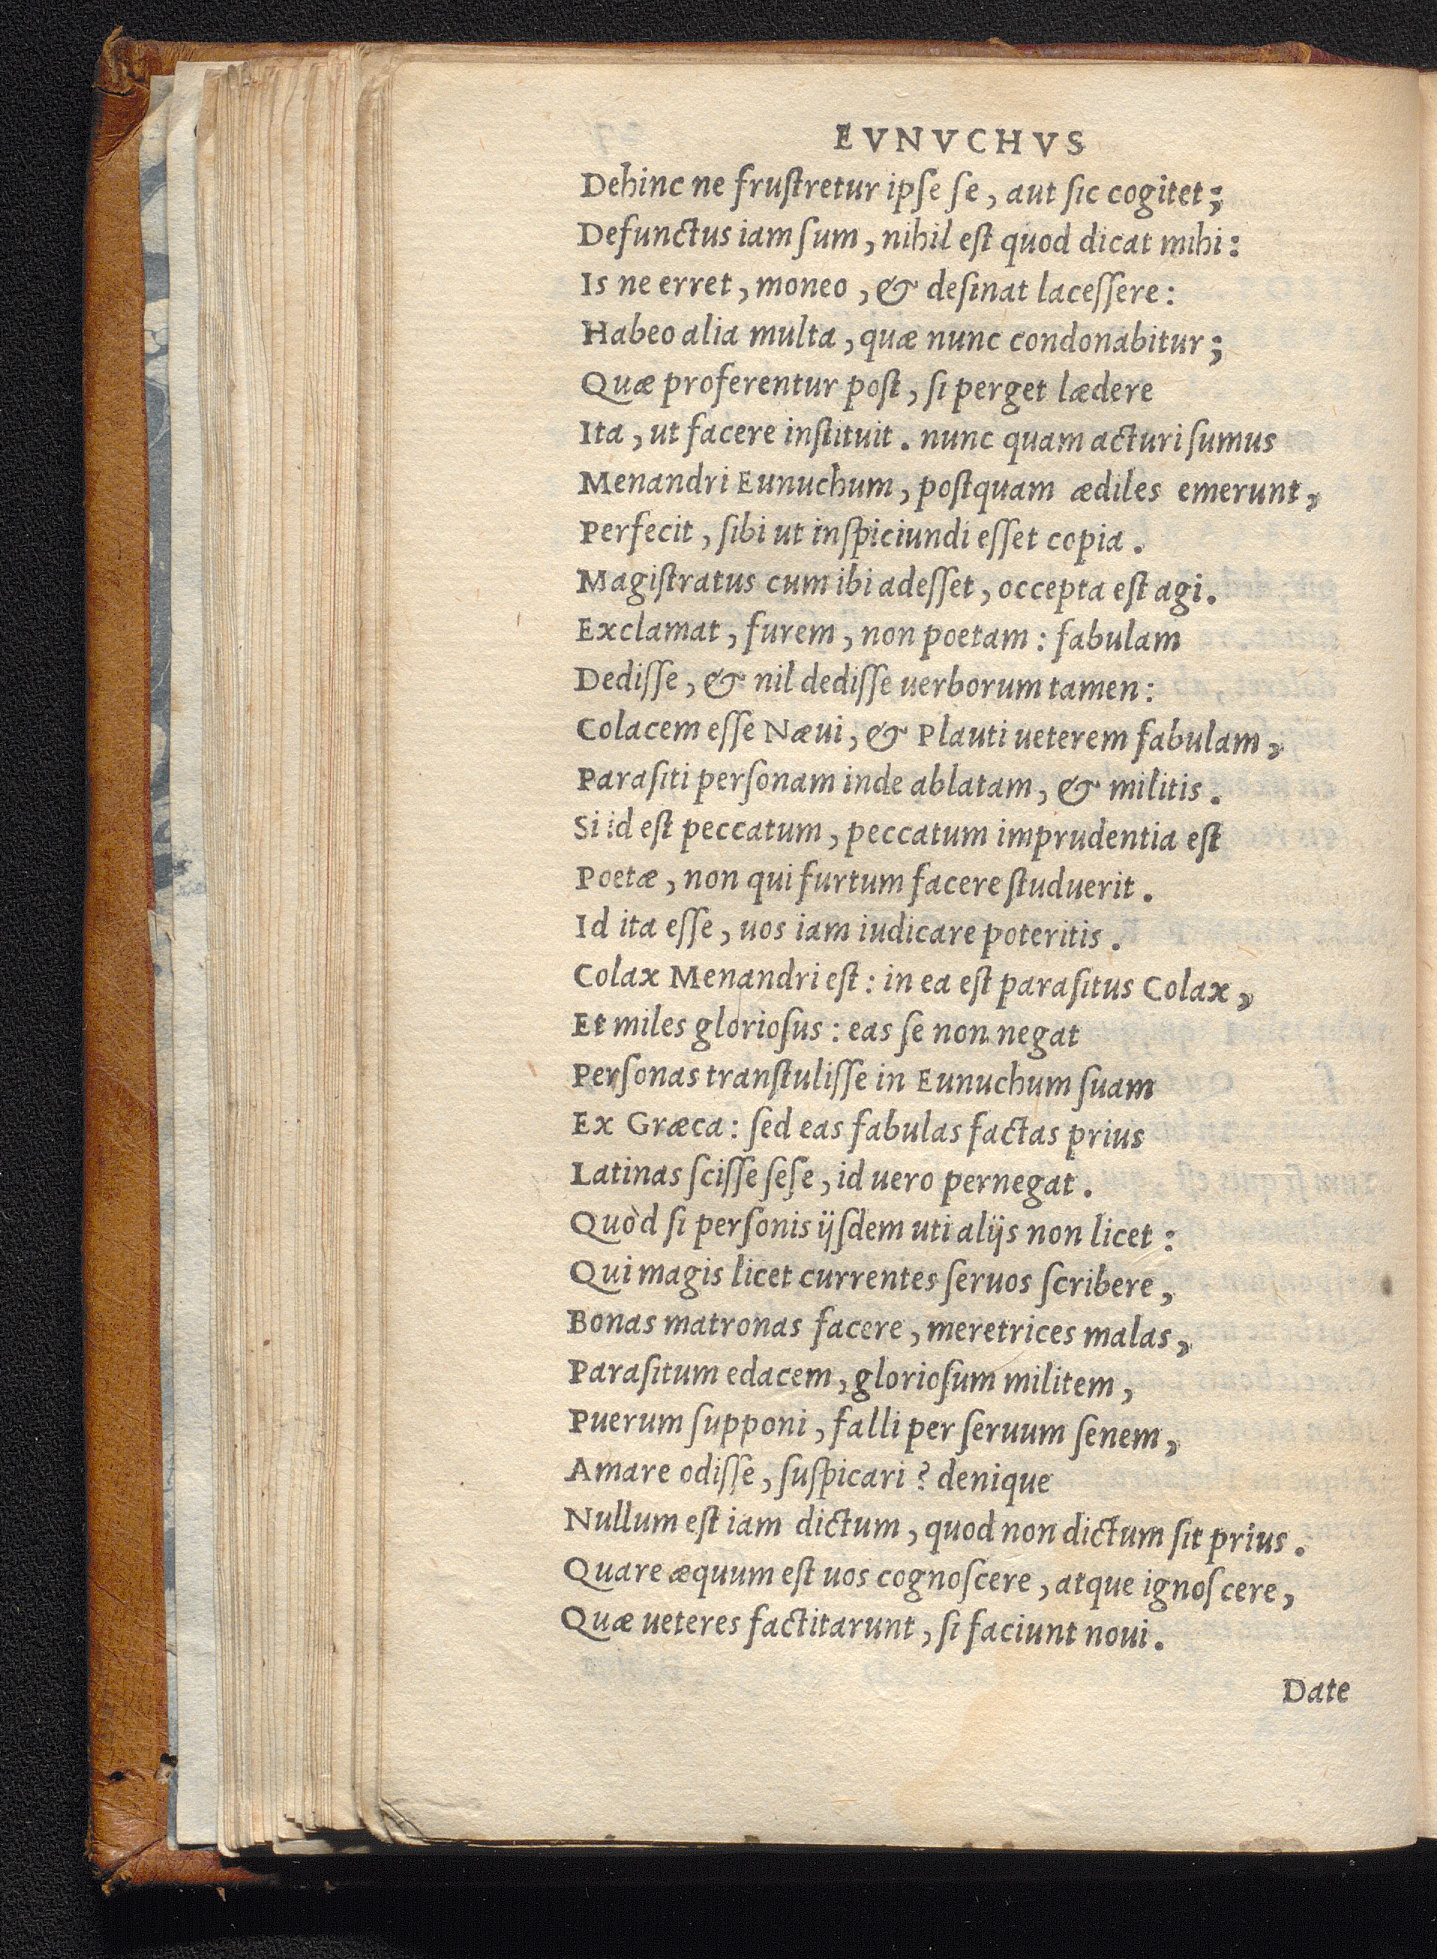 EVNVCHVS
Dehinc ne fruſtretur ipſe ſe, aut ſic cogitet;
Defunctus iam ſum, nihil eſt quod dicat mihi:
Is ne erret, moneo, & deſinat laceſſere:
Habeo alia multa, quæ nunc condonabitur;
Quæ proferentur poſt, ſi perget lædere
Ita, ut facere inſtituit. nunc quam acturi ſumus
Menandri Eunuchum, poſtquam ædiles emerunt,
Perfecit, ſibi ut inſpiciundi eſſet copia.
Magiſtratus cum ibi adeſſet, occepta eſt agi.
Exclamat, furem, non poetam: fabulam
Dediſſe, & nil dediſſe uerborum tamen:
Colacem eſſe Næui, & Plauti ueterem fabulam,
Paraſiti perſonam inde ablatam, & militis.
Si id eſt peccatum, peccatum imprudentia eſt
Poetæ, non qui furtum facere ſtuduerit.
Id ita eſſe, uos iam iudicare poteritis.
Colax Menandri eſt: in ea eſt paraſitus Colax,
Et miles glorioſus: eas ſe non negat
Perſonas tranſtuliſſe in Eunuchum ſuam
Ex Græca: ſed eas fabulas factas prius
Latinas ſciſſe ſeſe, id uero pernegat.
Quòd ſi perſonis ijſdem uti alijs non licet:
Qui magis licet currentes ſeruos ſcribere,
Bonas matronas facere, meretrices malas,
Paraſitum edacem, glorioſum militem,
Puerum ſupponi, falli per ſeruum ſenem,
Amare odiſſe, ſuſpicari? denique
Nullum eſt iam dictum, quod non dictum ſit prius.
Quare æquum eſt uos cognoſcere, atque ignoſcere,
Quæ ueteres factitarunt, ſi faciunt noui.
Date